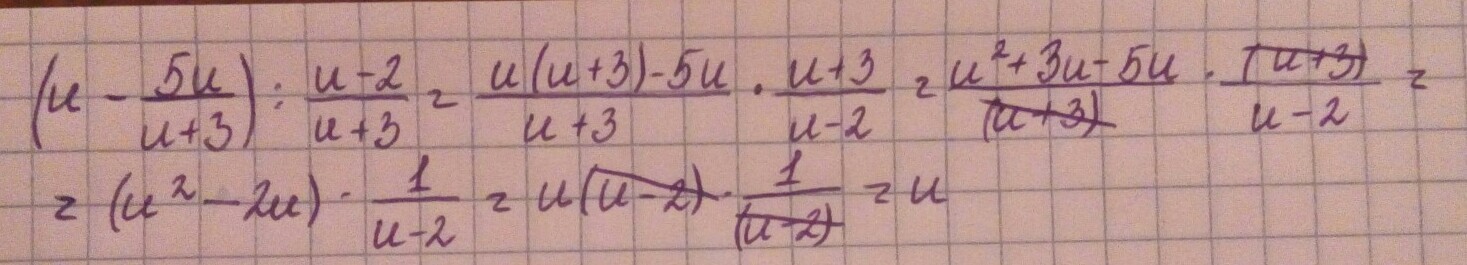 (u - 5u/(u+3)) : (u-2)/(u+3) = (u(u+3)-5u)/(u+3) · (u+3)/(u-2) = (u²+3u-5u)/(u+3) · (u+3)/(u-2) =
= (u²-2u) · 1/(u-2) = u(u-2) · 1/(u-2) = u